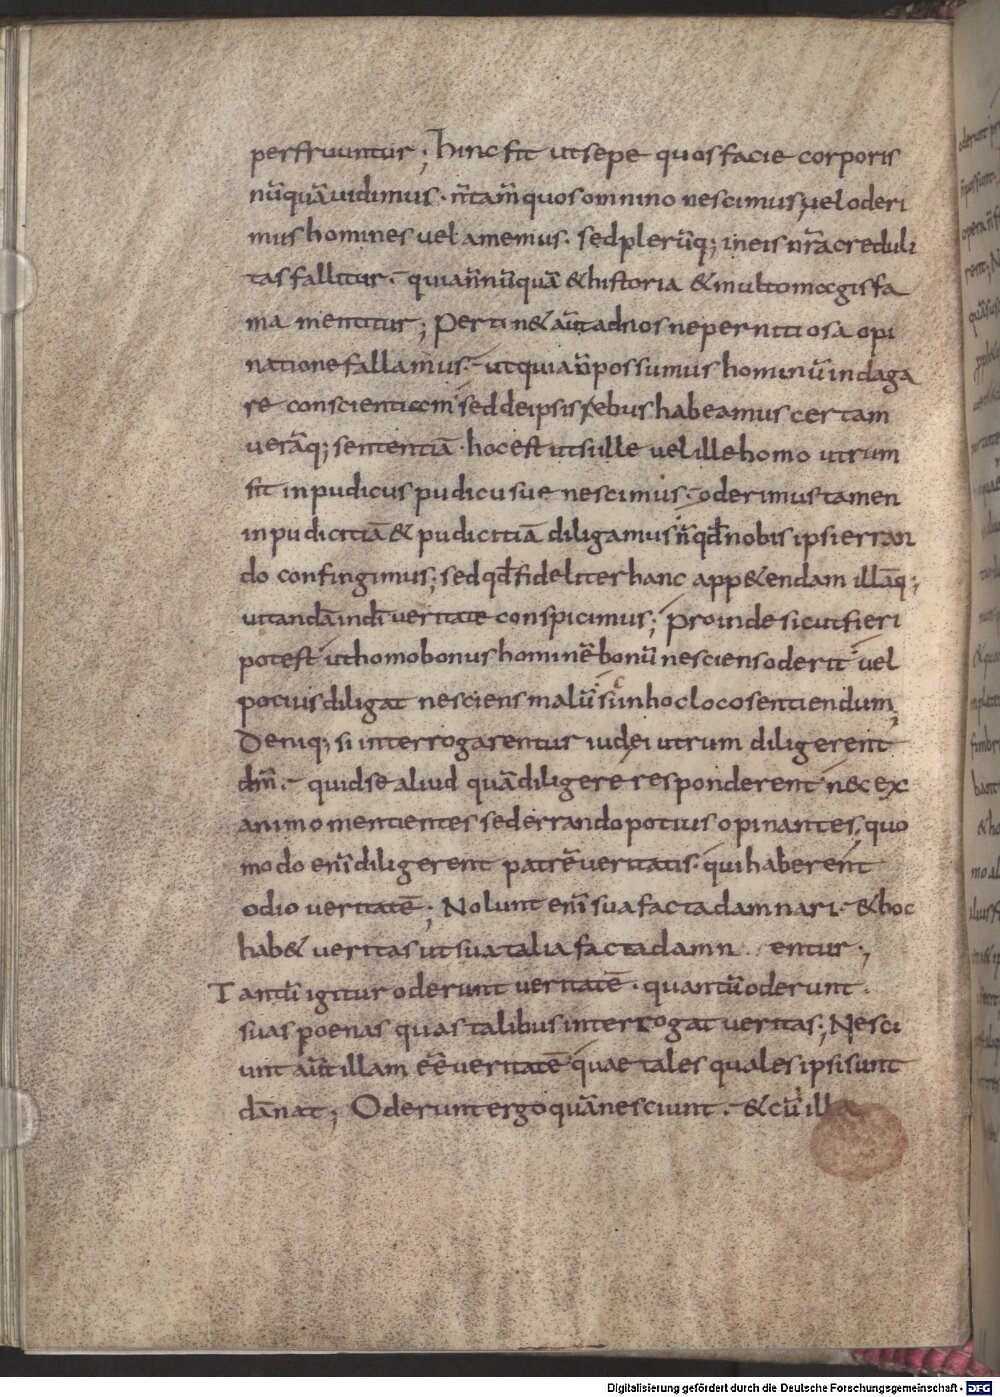 perfruuntur; hinc fit ut sepe quos facie corporis
nūquā uidimus. n̄ tam̄ quos omnino nescimus, uel oderi
mus homines uel amemus. sed plerūq; in eis nr̄a creduli
tas fallitur. quia n̄nūquā & historia & multo magis fa
ma mentitur; Pertin& aūt ad nos ne pernitiosa opi
natione fallamus. ut quia n̄ possumus hominū indaga
re conscientiam sed de ipsis rebus habeamus certam
uerāq; sententiā. hoc est ut si ille uel ille homo utrum
sit inpudicus pudicusue nescimus. oderimus tamen
inpudicitiā & pudicitiā diligamus n̄ qd̄ nobis ipsi erran
do confingimus; sed qd̄ fideliter hanc app&endam illāq;
uitandā in dī ueritate conspicimus; proinde sicut fieri
potest ut homo bonus hominē bonū nesciens oderit uel
potius diligat nesciens malū sī in hoc loco sentiendum;
Deniq; si interrogarentur iudei utrum diligerent
dm̄. quid se aliud quā diligere responderent nec ex
animo mentientes sed errando potius opinantes, quo
modo enī diligerent patrē ueritatis. qui haberent
odio ueritatē; Nolunt enī sua facta damnari. & hoc
hab& ueritas ut sua talia facta damn entur;
Tantū igitur oderunt ueritatē. quantū oderunt.
suas poenas quas talibus interrogat ueritas; Nesci
unt aūt illam eē ueritatē quae tales quales ipsi sunt
dānat; Oderunt ergo quā nesciunt. & cū illa
Digitalisierung gefördert durch die Deutsche Forschungsgemeinschaft - DFG